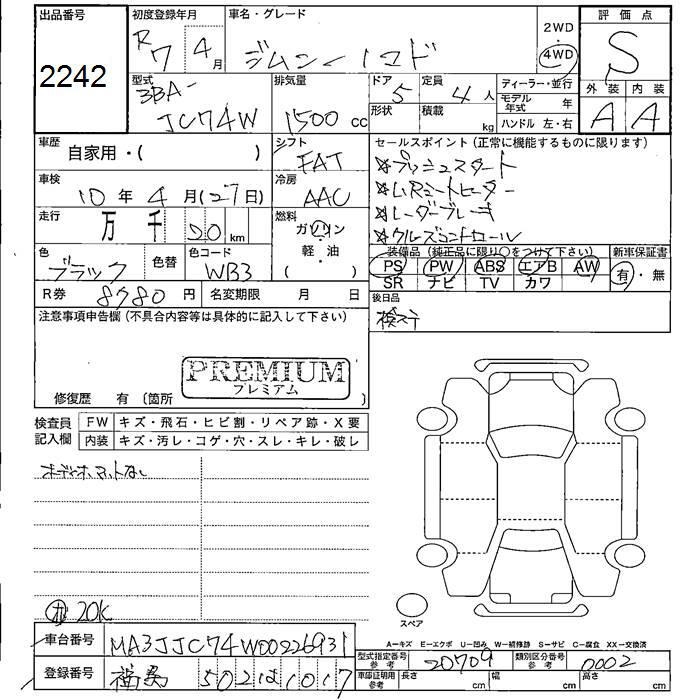 出品番号 初度登録年月 車名・グレード 2WD 評価点
2242 R7 4月 ジムニーノマド 4WD S
型式 排気量 ドア 定員 ディーラー・並行 外装 内装
3BA- 5 4人 モデル年式 年
JC74W 1500cc 形状 積載 kg ハンドル 左・右 A A
車歴 シフト セールスポイント(正常に機能するものに限ります)
自家用・( ) FAT ☆プッシュスタート
車検 冷房 ☆
10年4月(27日) AAC ☆レーダーブレーキ
走行 燃料 ☆クルーズコントロール
万 千 20km ガソリン
軽油
( )
色 色替 色コード 装備品(純正品に限り○をつけて下さい) 新車保証書
ブラック WB3 PS PW ABS エアB AW 有・無
SR ナビ TV カワ
R券 8780円 名変期限 月 日 後日品
注意事項申告欄(不具合内容等は具体的に記入して下さい) 検ステ
PREMIUM
プレミアム
修復歴 有(箇所 )
検査員 FW キズ・飛石・ヒビ割・リペア跡・X要
記入欄 内装 キズ・汚レ・コゲ・穴・スレ・キレ・破レ
20K
スペア
A―キズ E―エクボ U―凹み W―補修跡 S―サビ C―腐食 XX―交換済
車台番号 MA3JJC74W00226931
型式指定番号 参考 20709 類別区分番号 参考 0002
登録番号 福島 502 1017
車庫証明用 参考 長さ cm 幅 cm 高さ cm